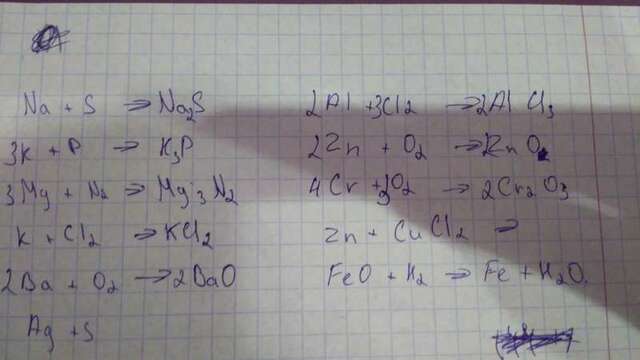 Na + S → Na₂S
3K + P → K₃P
3Mg + N₂ → Mg₃N₂
K + Cl₂ → KCl₂
2Ba + O₂ → 2BaO
Ag + S
2Al + 3Cl₂ → 2AlCl₃
2Zn + O₂ → 2ZnO
4Cr + 3O₂ → 2Cr₂O₃
Zn + CuCl₂ →
FeO + H₂ → Fe + H₂O.